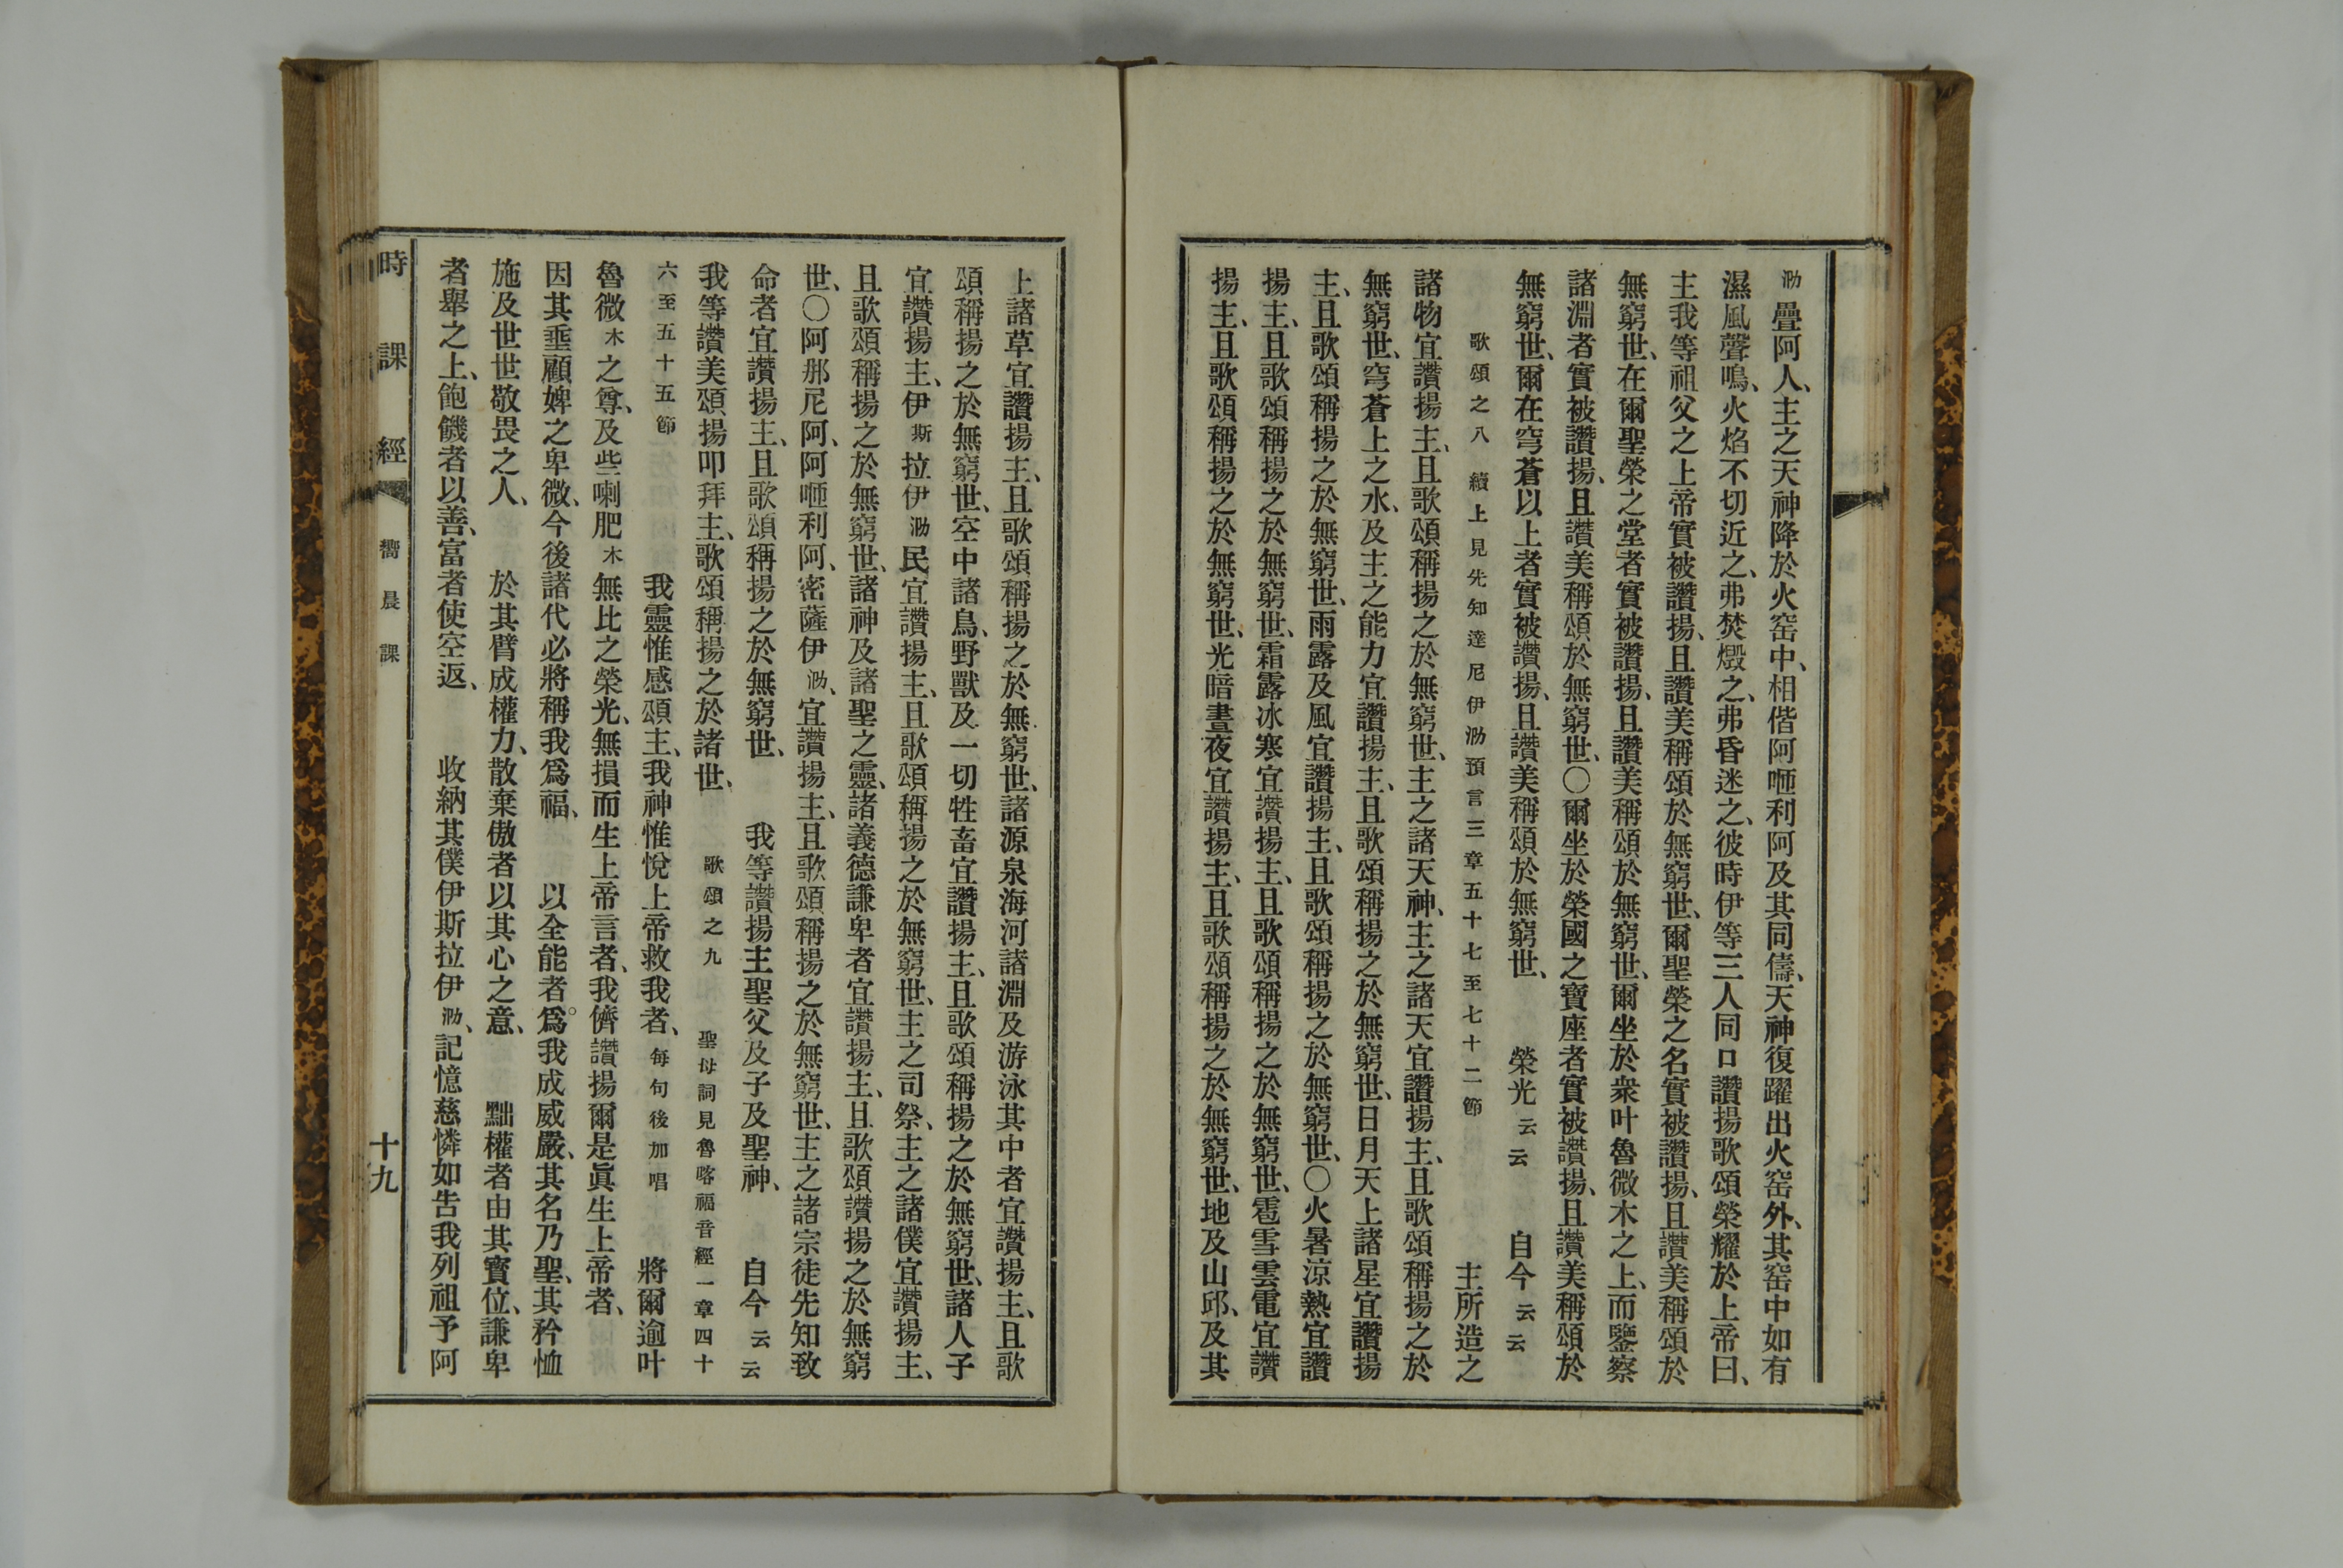 泐疊阿人、主之天神降於火窑中、相偕阿𠵽利阿及其同儔、天神復躍出火窑外、其窑中如有
濕風聲鳴、火焰不切近之、弗焚燬之、弗昏迷之、彼時伊等三人同口讚揚歌頌榮耀於上帝曰、
主我等祖父之上帝實被讚揚、且讚美稱頌於無窮世、爾聖榮之名實被讚揚、且讚美稱頌於
無窮世、在爾聖榮之堂者實被讚揚、且讚美稱頌於無窮世、爾坐於衆叶魯微木之上、而鑒察
諸淵者實被讚揚、且讚美稱頌於無窮世、○爾坐於榮國之寶座者實被讚揚、且讚美稱頌於
無窮世、爾在穹蒼以上者實被讚揚、且讚美稱頌於無窮世、 榮光云云 自今云云
歌頌之八 續上見先知達尼伊泐預言三章五十七至七十二節 主所造之
諸物宜讚揚主、且歌頌稱揚之於無窮世、主之諸天神、主之諸天宜讚揚主、且歌頌稱揚之於
無窮世、穹蒼上之水、及主之能力宜讚揚主、且歌頌稱揚之於無窮世、日月天上諸星宜讚揚
主、且歌頌稱揚之於無窮世、雨露及風宜讚揚主、且歌頌稱揚之於無窮世、○火暑涼熱宜讚
揚主、且歌頌稱揚之於無窮世、霜露冰寒宜讚揚主、且歌頌稱揚之於無窮世、雹雪雲電宜讚
揚主、且歌頌稱揚之於無窮世、光暗晝夜宜讚揚主、且歌頌稱揚之於無窮世、地及山邱、及其
上諸草宜讚揚主、且歌頌稱揚之於無窮世、諸源泉海河諸淵及游泳其中者宜讚揚主、且歌
頌稱揚之於無窮世、空中諸鳥、野獸及一切牲畜宜讚揚主、且歌頌稱揚之於無窮世、諸人子
宜讚揚主、伊斯拉伊泐民宜讚揚主、且歌頌稱揚之於無窮世、主之司祭、主之諸僕宜讚揚主、
且歌頌稱揚之於無窮世、諸神及諸聖之靈、諸義德謙卑者宜讚揚主、且歌頌讚揚之於無窮
世、○阿那尼阿、阿𠵽利阿、密薩伊泐、宜讚揚主、且歌頌稱揚之於無窮世、主之諸宗徒先知致
命者宜讚揚主、且歌頌稱揚之於無窮世、 我等讚揚主聖父及子及聖神、 自今云云
我等讚美頌揚叩拜主、歌頌稱揚之於諸世、 歌頌之九 聖母詞見魯喀福音經一章四十
六至五十五節 我靈惟感頌主、我神惟悅上帝救我者、 每句後加唱 將爾逾叶
魯微木之尊、及些喇肥木無比之榮光、無損而生上帝言者、我儕讚揚爾是眞生上帝者、
因其垂顧婢之卑微、今後諸代必將稱我爲福、 以全能者。爲我成威嚴、其名乃聖、其矜恤
施及世世敬畏之人、 於其臂成權力、散棄傲者以其心之意、 黜權者由其寶位、謙卑
者舉之上、飽饑者以善、富者使空返、 收納其僕伊斯拉伊泐、記憶慈憐如吿我列祖予阿
時課經 嚮晨課 十九